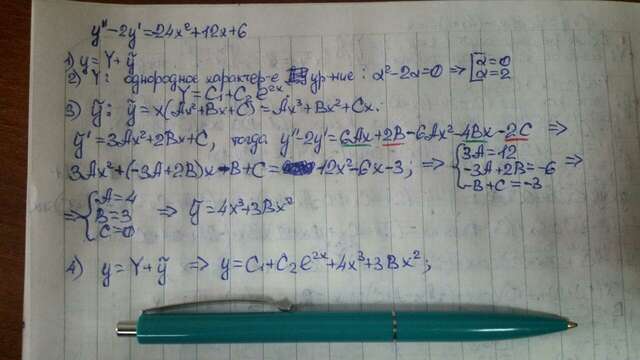 y''-2y'=24x²+12x+6
1) y=Y+ỹ
2) Y: однородное характер-е ур-ние: α²-2α=0 ⇒ [α=0 α=2
Y=C₁+C₂e²ˣ
3) ỹ: ỹ=x(Ax²+Bx+C)=Ax³+Bx²+Cx.
ỹ'=3Ax²+2Bx+C, тогда y''-2y'=6Ax+2B-6Ax²-4Bx-2C ⇒
3Ax²+(-3A+2B)x-B+C=-12x²-6x-3; ⇒ {3A=12 -3A+2B=-6 -B+C=-3 ⇒
⇒ {A=4 B=3 C=0 ⇒ ỹ=4x³+3Bx²
4) y=Y+ỹ ⇒ y=C₁+C₂e²ˣ+4x³+3Bx²;